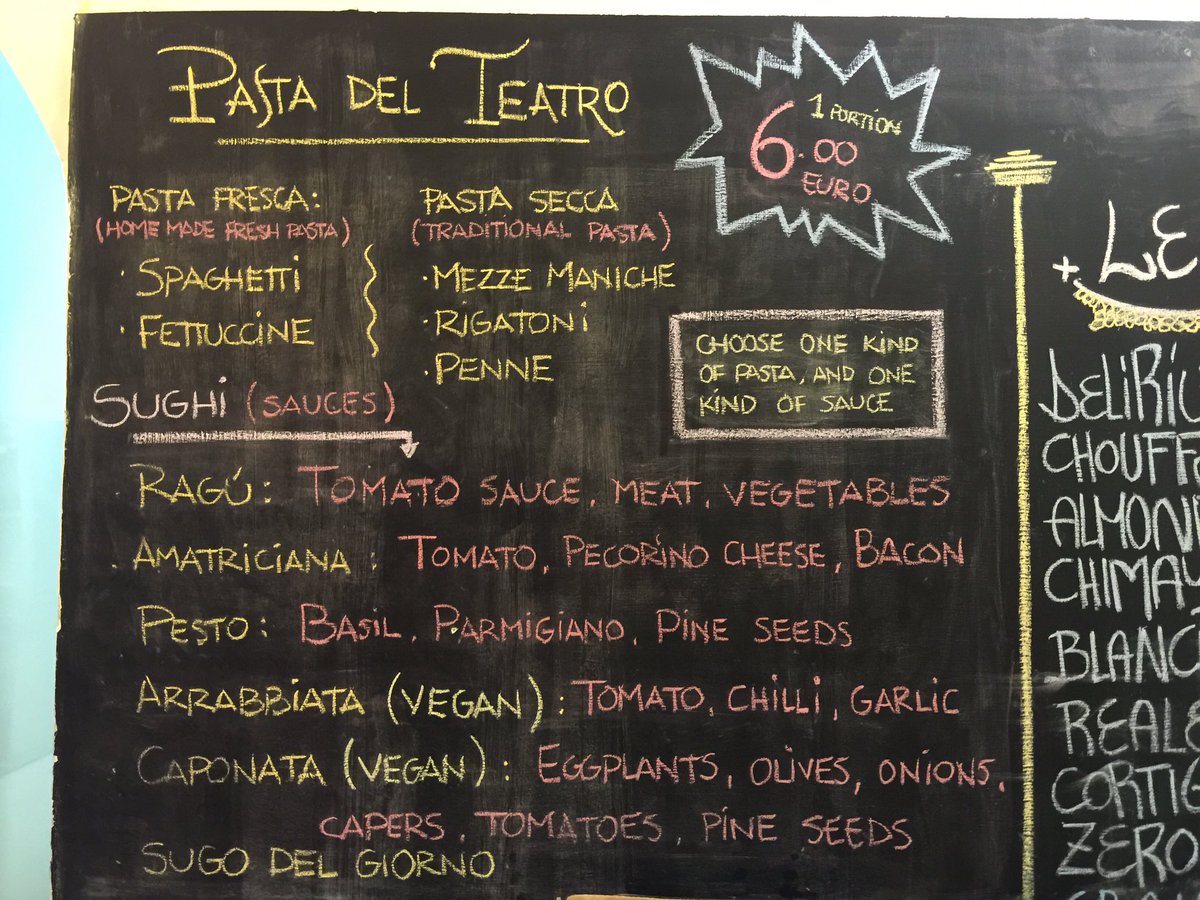 PASTA DEL TEATRO
1 PORTION
6.00
EURO
PASTA FRESCA:
(HOME MADE FRESH PASTA)
· SPAGHETTI
· FETTUCCINE
PASTA SECCA
(TRADITIONAL PASTA)
· MEZZE MANICHE
· RIGATONI
· PENNE
CHOOSE ONE KIND
OF PASTA, AND ONE
KIND OF SAUCE
SUGHI (SAUCES)
· RAGÚ: TOMATO SAUCE, MEAT, VEGETABLES
· AMATRICIANA: TOMATO, PECORINO CHEESE, BACON
· PESTO: BASIL, PARMIGIANO, PINE SEEDS
· ARRABBIATA (VEGAN): TOMATO, CHILLI, GARLIC
· CAPONATA (VEGAN): EGGPLANTS, OLIVES, ONIONS,
CAPERS, TOMATOES, PINE SEEDS
· SUGO DEL GIORNO
+ LE
ZERO